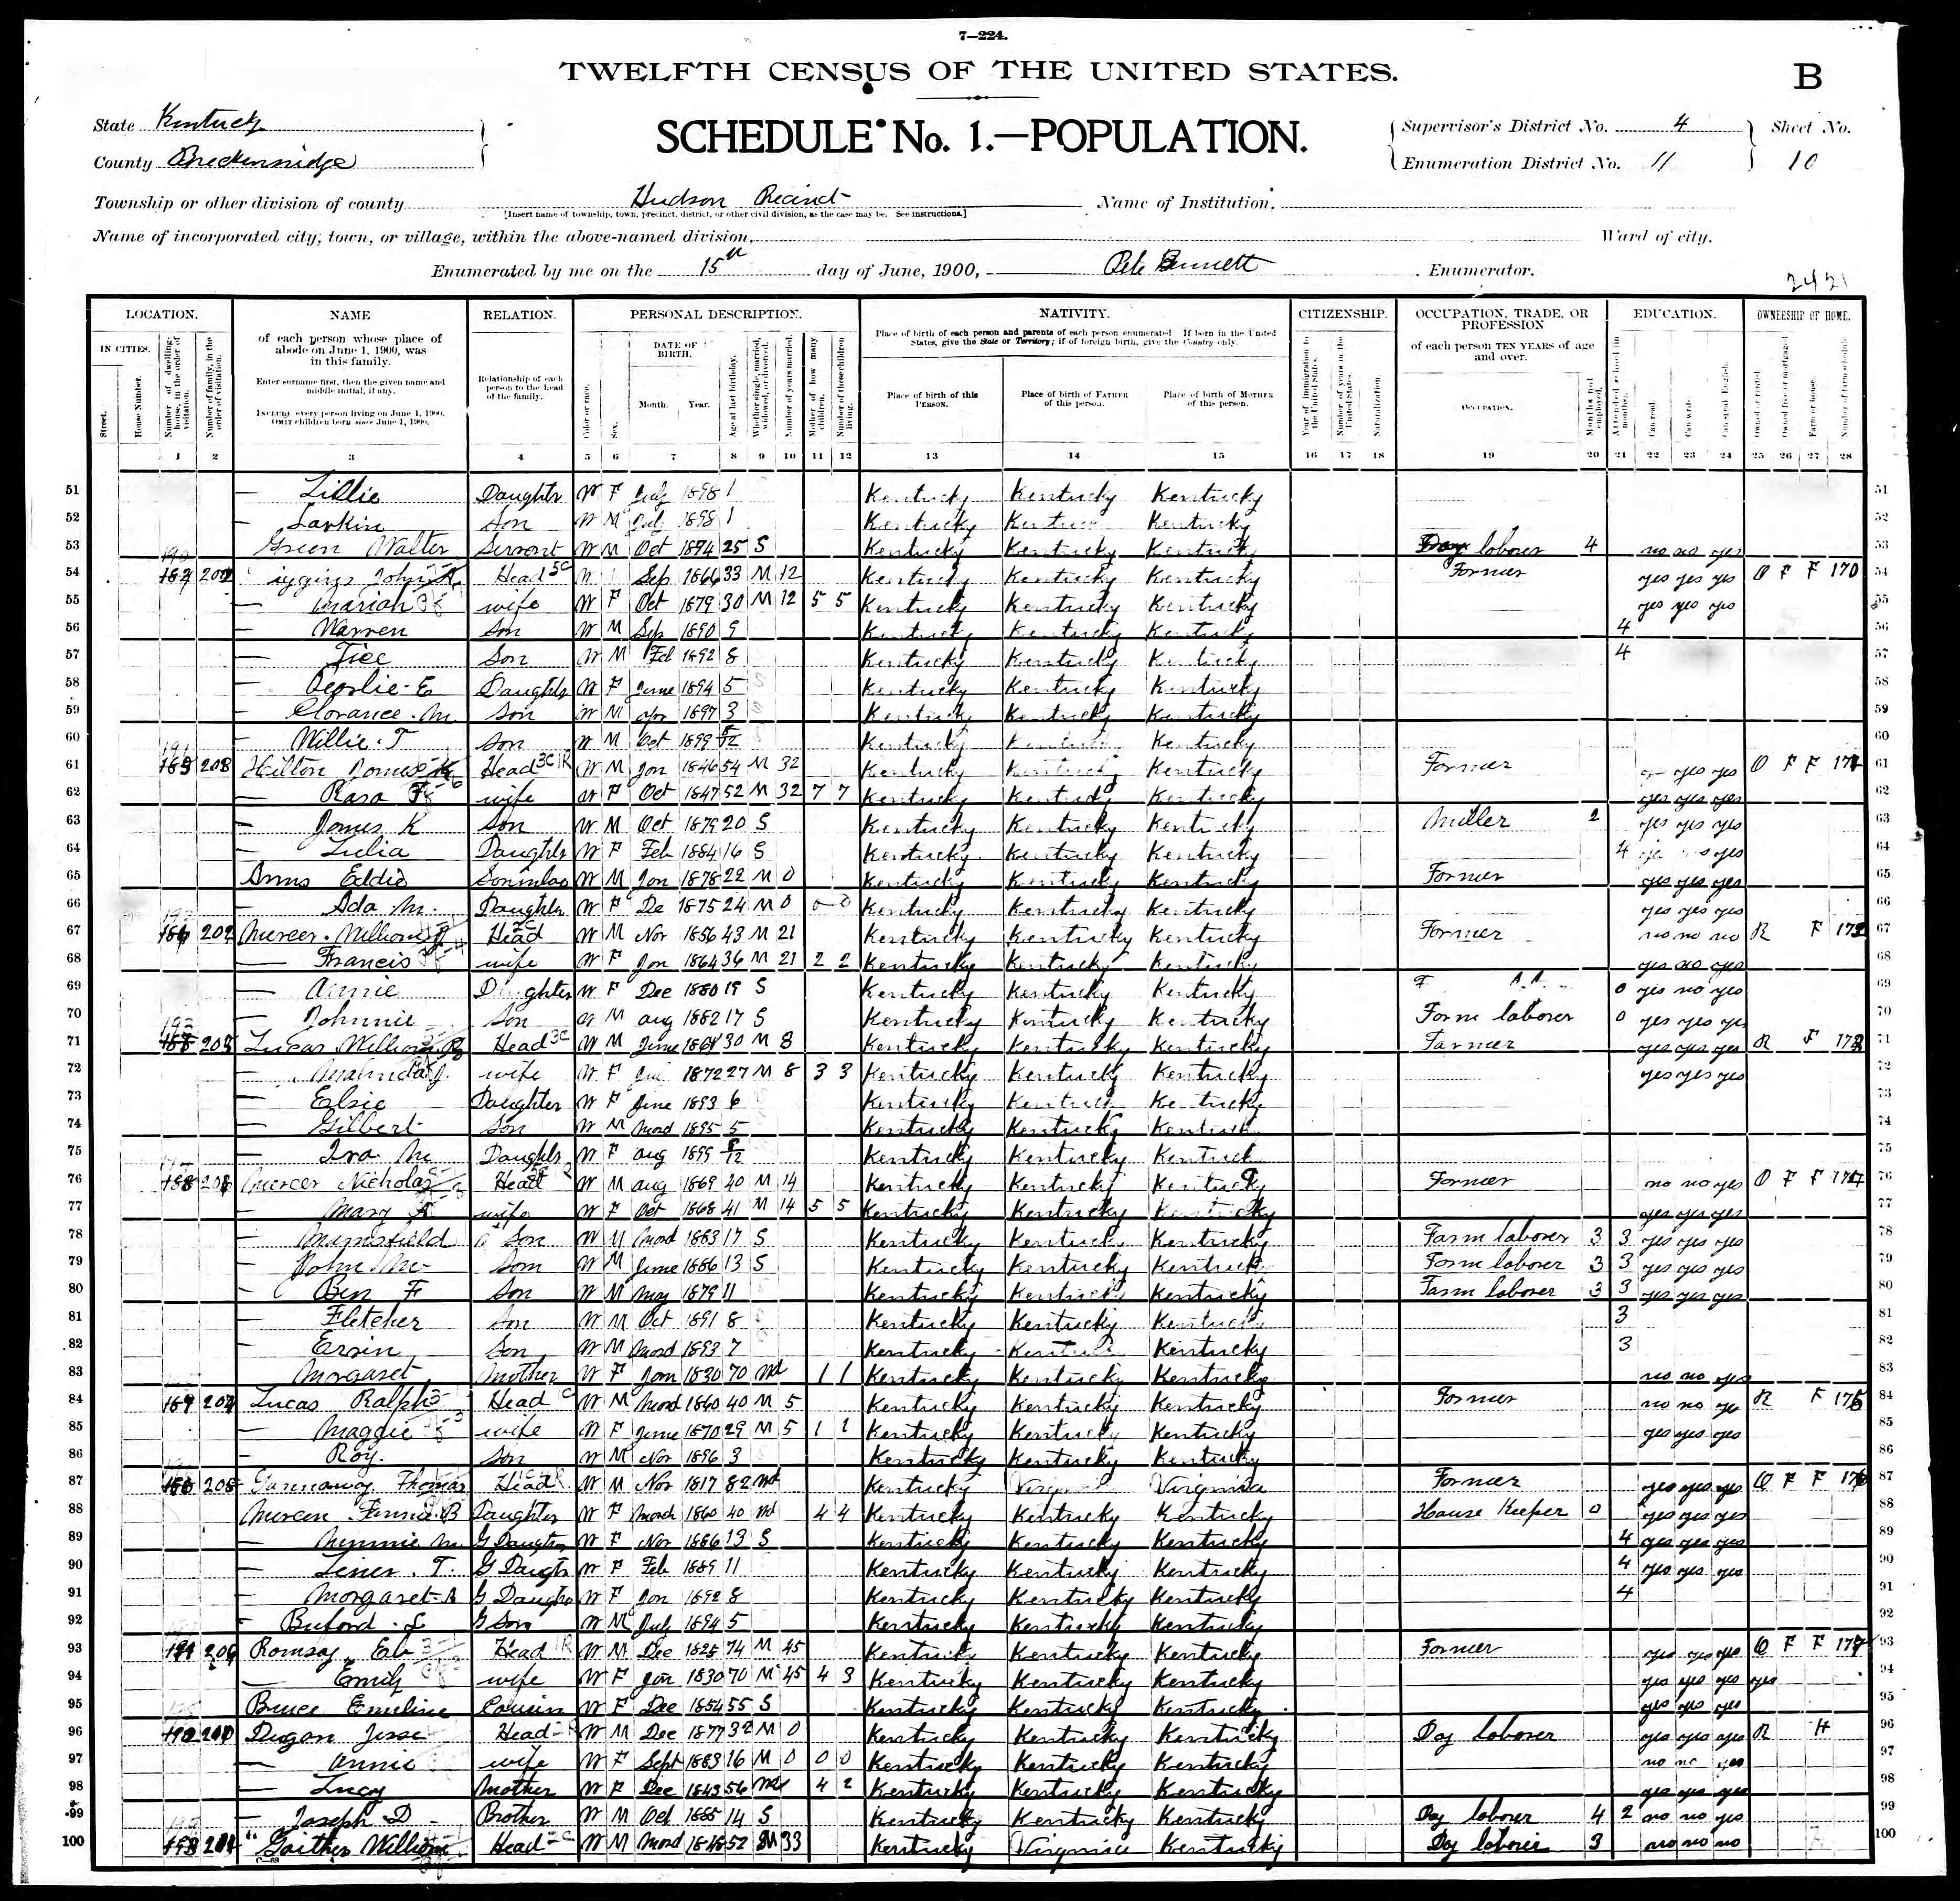 7—224.
TWELFTH CENSUS OF THE UNITED STATES.
B
State Kentucky
SCHEDULE No. 1.—POPULATION.
Supervisor's District No. 4 Sheet No.
County Breckenridge
Enumeration District No. 11 10
Township or other division of county Hudson Precinct Name of Institution,
[Insert name of township, town, precinct, district, or other civil division, as the case may be. See instructions.]
Name of incorporated city, town, or village, within the above-named division, Ward of city,
Enumerated by me on the 15th day of June, 1900, Pete Bennett, Enumerator.
2421
LOCATION. NAME RELATION. PERSONAL DESCRIPTION. NATIVITY. CITIZENSHIP. OCCUPATION, TRADE, OR PROFESSION EDUCATION. OWNERSHIP OF HOME.
IN CITIES. of each person whose place of abode on June 1, 1900, was in this family.
Enter surname first, then the given name and middle initial, if any.
INCLUDE every person living on June 1, 1900. OMIT children born since June 1, 1900.
Relationship of each person to the head of the family.
DATE OF BIRTH. Month. Year.
Place of birth of each person and parents of each person enumerated. If born in the United States, give the State or Territory; if of foreign birth, give the Country only.
Place of birth of this PERSON. Place of birth of FATHER of this person. Place of birth of MOTHER of this person.
of each person TEN YEARS of age and over.
OCCUPATION.
1 2 3 4 5 6 7 8 9 10 11 12 13 14 15 16 17 18 19 20 21 22 23 24 25 26 27 28
51 — Lillie Daughter W F July 1898 1 Kentucky Kentucky Kentucky 51
52 — Larkin Son W M July 1898 1 Kentucky Kentucky Kentucky 52
53 Green Walter Servant W M Oct 1874 25 S Kentucky Kentucky Kentucky Day laborer 4 no no yes 53
54 John Head W Sep 1866 33 M 12 Kentucky Kentucky Kentucky Farmer yes yes yes O F F 170 54
55 — Mariah wife W F Oct 1879 30 M 12 5 5 Kentucky Kentucky Kentucky yes yes yes 55
56 — Warren Son W M Sep 1890 9 Kentucky Kentucky Kentucky 4 56
57 — Tice Son W M Feb 1892 8 Kentucky Kentucky Kentucky 4 57
58 — E Daughter W F June 1894 5 Kentucky Kentucky Kentucky 58
59 — Clarance M Son W M Apr 1897 3 Kentucky Kentucky Kentucky 59
60 — Willie T Son W M Oct 1899 Kentucky Kentucky Kentucky 60
61 Hilton James K Head W M Jan 1846 54 M 32 Kentucky Kentucky Kentucky Farmer yes yes O F F 171 61
62 — Rasa wife W F Oct 1847 52 M 32 7 7 Kentucky Kentucky Kentucky yes yes yes 62
63 — James K Son W M Oct 1879 20 S Kentucky Kentucky Kentucky Miller 2 yes yes yes 63
64 — Lulia Daughter W F Feb 1884 16 S Kentucky Kentucky Kentucky 4 yes 64
65 Arms Eddie Soninlaw W M Jan 1878 22 M 0 Kentucky Kentucky Kentucky Farmer yes yes yes 65
66 — Ada M. Daughter W F De 1875 24 M 0 0 0 Kentucky Kentucky Kentucky yes yes yes 66
67 Mercer William Head W M Nov 1856 43 M 21 Kentucky Kentucky Kentucky Farmer no no no R F 172 67
68 — Francis wife W F Jan 1864 36 M 21 2 2 Kentucky Kentucky Kentucky yes no yes 68
69 — Annie Daughter W F Dec 1880 19 S Kentucky Kentucky Kentucky 0 yes no yes 69
70 — Johnnie Son W M Aug 1882 17 S Kentucky Kentucky Kentucky Farm laborer 0 yes yes yes 70
71 Lucas William Head W M June 30 M 8 Kentucky Kentucky Kentucky Farmer yes yes yes R F 173 71
72 — Malinda J. wife W F 1872 27 M 8 3 3 Kentucky Kentucky Kentucky yes yes yes 72
73 — Elsie Daughter W F June 1893 6 Kentucky Kentucky Kentucky 73
74 — Gilbert Son W M March 1895 5 Kentucky Kentucky Kentucky 74
75 — Iva M. Daughter W F Aug 1899 Kentucky Kentucky Kentucky 75
76 Mercer Nicholas Head W M Aug 40 M 14 Kentucky Kentucky Kentucky Farmer no no yes O F F 174 76
77 — Mary wife W F Oct 41 M 14 5 5 Kentucky Kentucky Kentucky yes yes yes 77
78 — Mumsfield Son W M March 1883 17 S Kentucky Kentucky Kentucky Farm laborer 3 3 yes yes yes 78
79 — John M Son W M June 1886 13 S Kentucky Kentucky Kentucky Farm laborer 3 3 yes yes yes 79
80 — Ben F Son W M May 1879 11 Kentucky Kentucky Kentucky Farm laborer 3 3 yes yes yes 80
81 — Fletcher Son W M Oct 1891 8 Kentucky Kentucky Kentucky 3 81
82 — Ervin Son W M March 1893 7 Kentucky Kentucky Kentucky 3 82
83 — Margaret Mother W F Jan 1830 70 Wd 1 1 Kentucky Kentucky Kentucky no no yes 83
84 Lucas Ralph Head W M March 1860 40 M 5 Kentucky Kentucky Kentucky Farmer no no ye R F 175 84
85 — Maggie wife W F June 1870 29 M 5 1 1 Kentucky Kentucky Kentucky yes yes yes 85
86 — Roy. Son W M Nov 1896 3 Kentucky Kentucky Kentucky 86
87 Gannaway Thomas Head W M Nov 1817 82 Wd Kentucky Virginia Virginia Farmer yes yes yes O F F 176 87
88 Mercer Fannie B Daughter W F March 1860 40 Wd 4 4 Kentucky Kentucky Kentucky House Keeper 0 yes yes yes 88
89 — Minnie M. G Daughter W F Nov 1886 13 S Kentucky Kentucky Kentucky 4 yes yes yes 89
90 — T. G Daughter W F Feb 1889 11 Kentucky Kentucky Kentucky 4 yes yes yes 90
91 — Margaret A G Daughter W F Jan 1892 8 Kentucky Kentucky Kentucky 4 91
92 — Buford G Son W M July 1894 5 Kentucky Kentucky Kentucky 92
93 Ramsay Head W M Dec 1825 74 M 45 Kentucky Kentucky Kentucky Farmer yes yes yes O F F 177 93
94 — Emily wife W F Jan 1830 70 M 45 4 3 Kentucky Kentucky Kentucky yes yes yes yes 94
95 Bruce Emeline Cousin W F Dec 1854 55 S Kentucky Kentucky Kentucky yes yes yes 95
96 Dugan Jesse Head W M Dec 1877 32 M 0 Kentucky Kentucky Kentucky Day laborer yes yes yes R H 96
97 — Annie wife W F Sept 1883 16 M 0 0 0 Kentucky Kentucky Kentucky no no yes 97
98 — Lucy Mother W F Dec 1843 56 Wd 4 2 Kentucky Kentucky Kentucky yes yes yes 98
99 — Joseph D Brother W M Oct 1885 14 S Kentucky Kentucky Kentucky Day laborer 4 2 no no yes 99
100 Gaither William Head W M March 1848 52 M 33 Kentucky Virginia Kentucky Day laborer 3 no no no 100